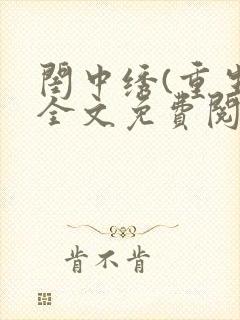 閨中绣(重生
全文免費閱
肯不肯